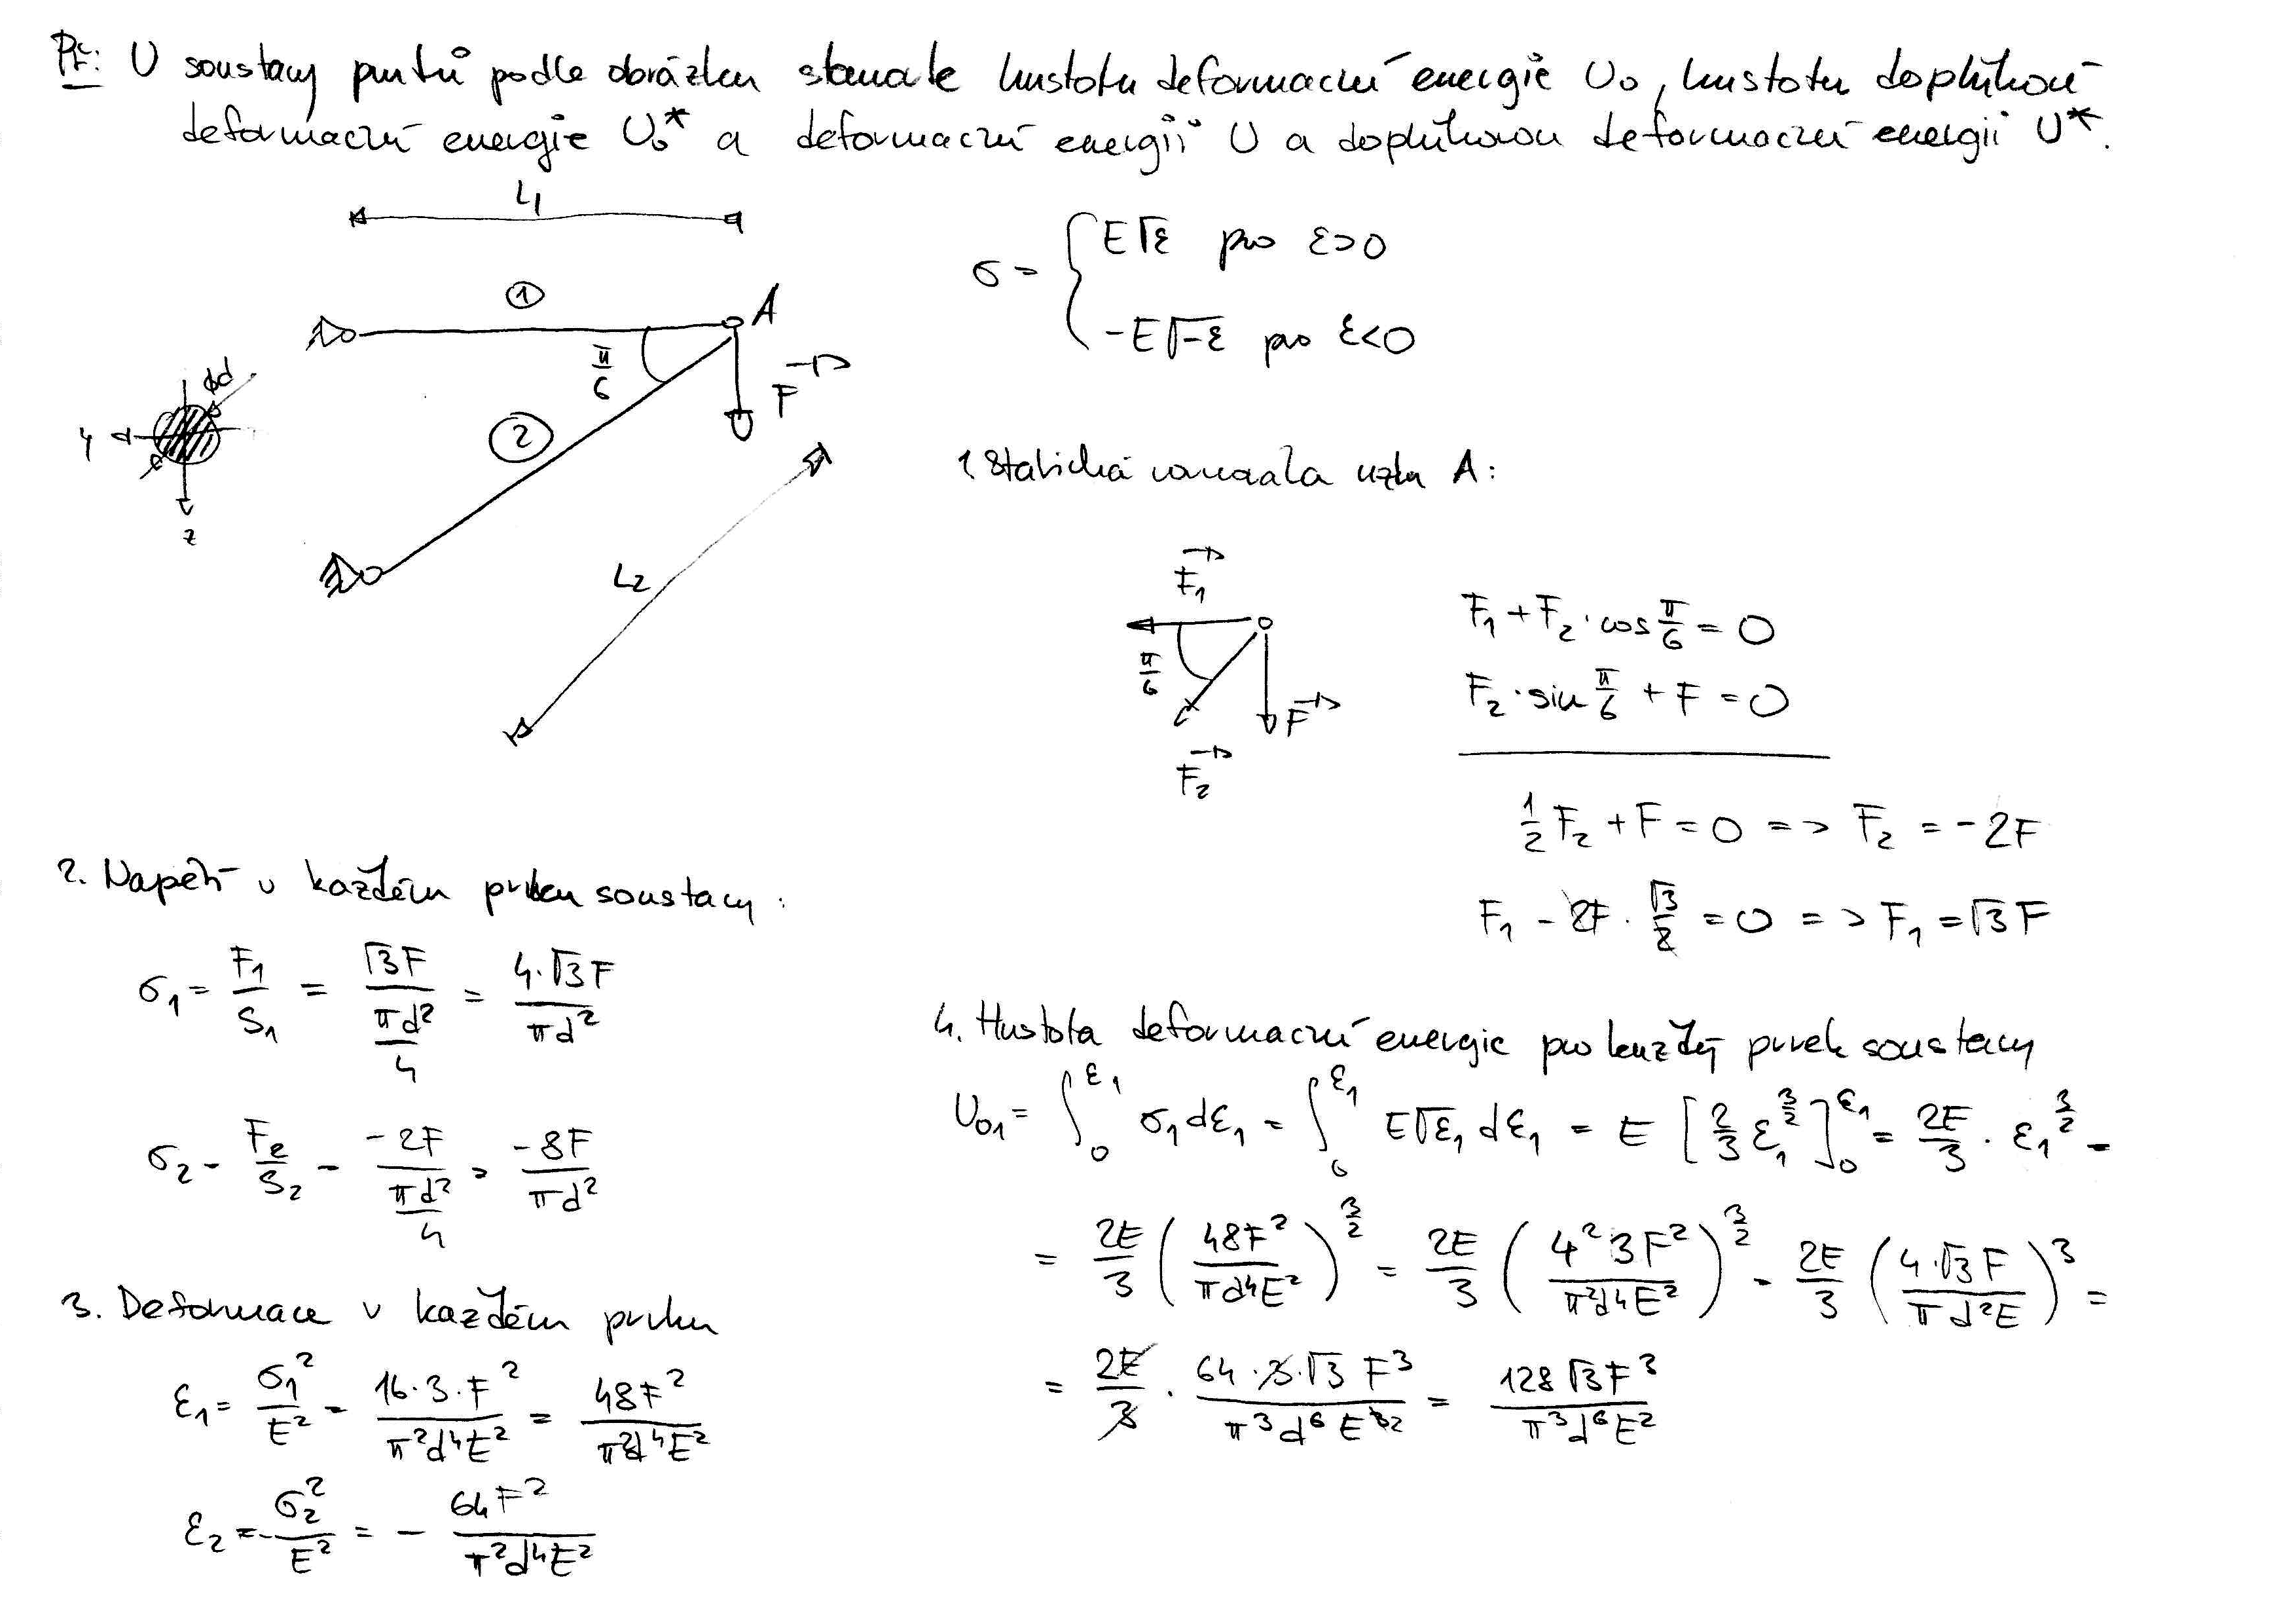 Př: U soustavy prutů podle obrázku stanovte hustotu deformační energie U₀, hustotu doplňkové
deformační energie U₀* a deformační energii U a doplňkovou deformační energii U*.
L₁
① A
π/6
② F
ød
y
z
L₂
σ = { E√ε pro ε>0
-E√-ε pro ε<0
1. Statická rovnováha uzlu A:
F₁
π/6
F
F₂
F₁ + F₂ · cos π/6 = 0
F₂ · sin π/6 + F = 0
1/2 F₂ + F = 0 => F₂ = -2F
F₁ - 2F · √3/2 = 0 => F₁ = √3 F
2. Napětí v každém prvku soustavy:
σ₁ = F₁/S₁ = √3F/(πd²/4) = 4·√3F/πd²
σ₂ = F₂/S₂ = -2F/(πd²/4) = -8F/πd²
3. Deformace v každém prvku
ε₁ = σ₁²/E² = 16·3·F²/π²d⁴E² = 48F²/π²d⁴E²
ε₂ = -σ₂²/E² = - 64F²/π²d⁴E²
4. Hustota deformační energie pro každý prvek soustavy
U₀₁ = ∫₀^ε₁ σ₁dε₁ = ∫₀^ε₁ E√ε₁ dε₁ = E [2/3 ε₁^3/2]₀^ε₁ = 2E/3 · ε₁^3/2 =
= 2E/3 (48F²/πd⁴E²)^3/2 = 2E/3 (4²3F²/π²d⁴E²)^3/2 = 2E/3 (4·√3F/πd²E)³ =
= 2E/3 · 64·3·√3 F³/π³d⁶E³² = 128√3F³/π³d⁶E²